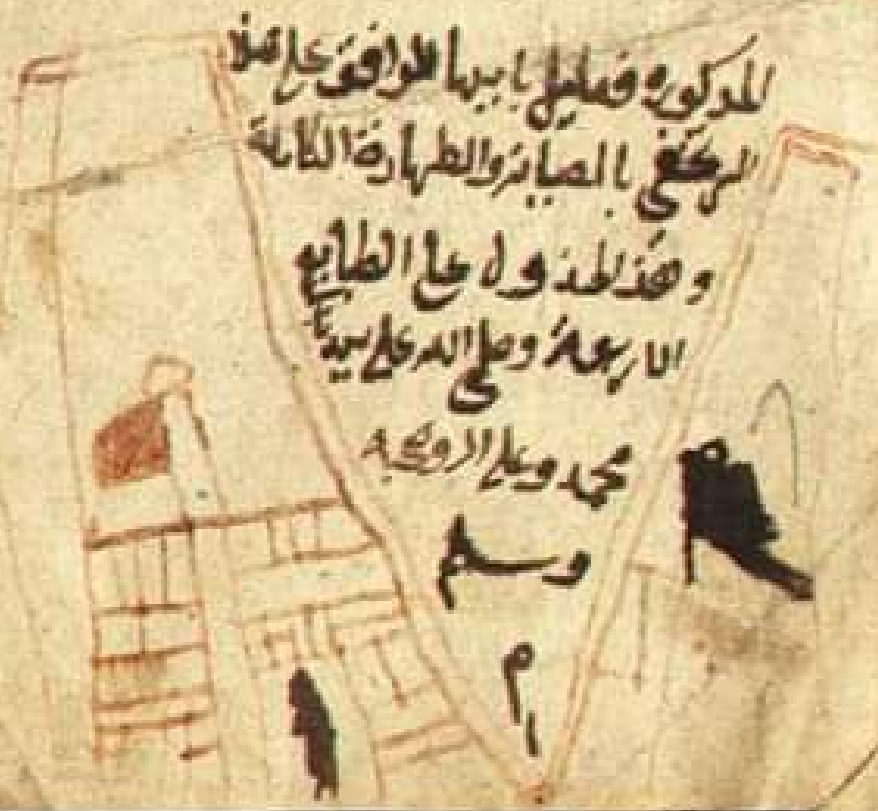 المذكوره فقابل بابها الموافق على هذا
بالصيانة والطهارة الكاملة
وهذا الجدول على الطبايع
الاربعة وصلى الله على سيدنا
محمد وعلى اله وصحبه
وسلم
م